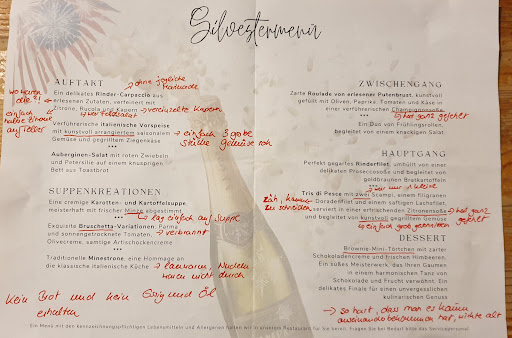 Silvestermenü
AUFTAKT
Ein delikates Rinder-Carpaccio aus
erlesenen Zutaten, verfeinert mit
Zitrone, Rucola und Kapern
→ ohne jegliche
Marinade
wo waren
die?!
einfach
halbe Zitrone
auf Teller
Feldsalat
→ vereinzelte Kapern
Verführerische italienische Vorspeise
mit kunstvoll arrangiertem saisonalem
Gemüse und gegrilltem Ziegenkäse
→ einfach 3 grobe
Stücke Gemüse roh
***
Auberginen-Salat mit roten Zwiebeln
und Petersilie auf einem knusprigen
Bett aus Toastbrot
SUPPENKREATIONEN
Eine cremige Karotten- und Kartoffelsuppe
meisterhaft mit frischer Minze abgestimmt
→ lag einfach auf Suppe
***
Exquisite Bruschetta-Variationen: Parma
und sonnengetrocknete Tomaten,
Olivecreme, samtige Artischockencreme
→ verbrannt
***
Traditionelle Minestrone, eine Hommage an
die klassische italienische Küche
→ lauwarm, Nudeln
waren nicht durch
Kein Brot und kein Essig und Öl
erhalten
ZWISCHENGANG
Zarte Roulade von erlesener Putenbrust, kunstvoll
gefüllt mit Oliven, Paprika, Tomaten und Käse in
einer verführerischen Champagnersoße
→ hat ganz gefehlt
***
Ein Duo von Frühlingsrollen,
begleitet von einem knackigen Salat
HAUPTGANG
Perfekt gegartes Rinderfilet, umhüllt von einer
delikaten Proseccosoße und begleitet von
goldbraunen Bratkartoffeln
***
→ nur 1 kleine
Tris di Pesce mit zwei Scampi, einem filigranen
Doradenfilet und einem saftigen Lachsfilet,
serviert in einer erfrischenden Zitronensoße
und begleitet von kunstvoll gegrilltem Gemüse
zäh, kaum
zu schneiden
→ hat ganz
gefehlt
→ einfach grob geschnitten
DESSERT
Brownie-Mini-Törtchen mit zarter
Schokoladencreme und frischen Himbeeren.
Ein süßes Meisterwerk, das Ihren Gaumen
in einem harmonischen Tanz von
Schokolade und Frucht verwöhnt. Ein
delikates Finale für einen unvergesslichen
kulinarischen Genuss
→ so hart, dass man es kaum
auseinander bekommen hat, wirkte alt
Ein Menü mit den kennzeichnungspflichtigen Lebensmitteln und Allergenen halten wir in unserem Restaurant für Sie bereit. Fragen Sie bei Bedarf bitte das Servicepersonal.